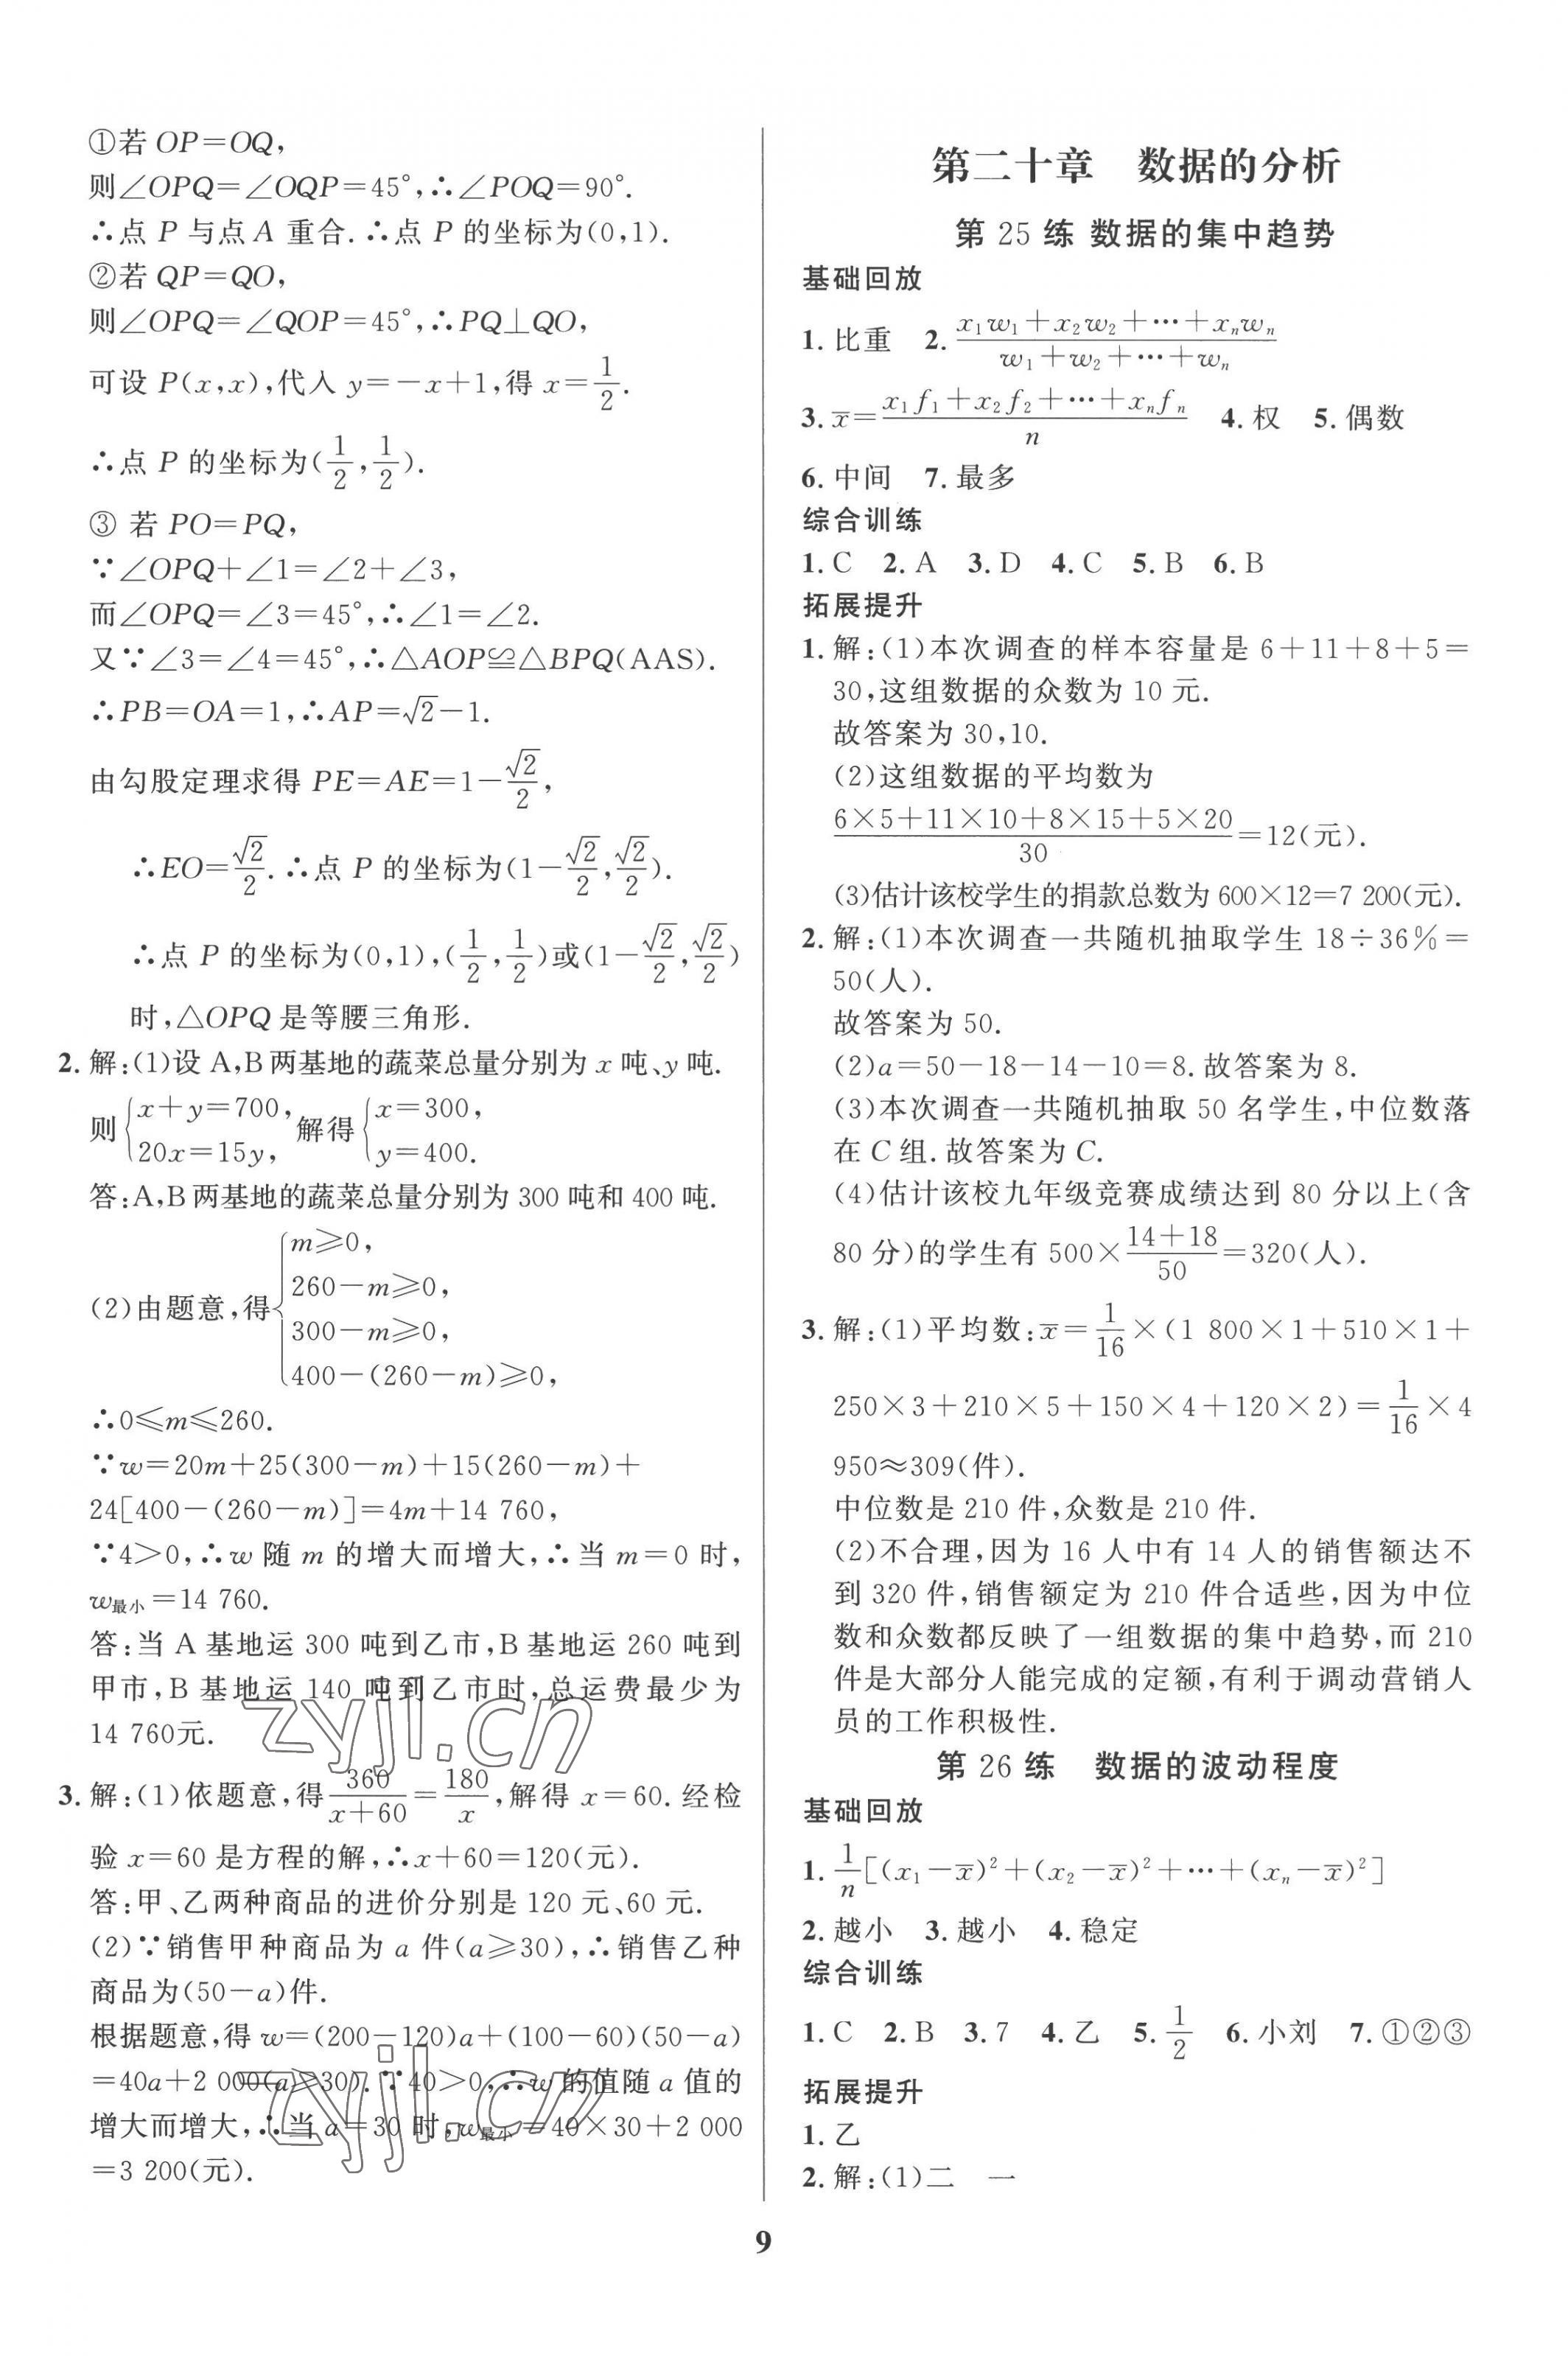 ①若 OP=OQ,
则∠OPQ=∠OQP=45°,∴∠POQ=90°.
∴点 P 与点 A 重合.∴点 P 的坐标为(0,1).
②若 QP=QO,
则∠OPQ=∠QOP=45°,∴PQ⊥QO,
可设 P(x,x),代入 y=-x+1,得 x=1/2.
∴点 P 的坐标为(1/2,1/2).
③ 若 PO=PQ,
∵∠OPQ+∠1=∠2+∠3,
而∠OPQ=∠3=45°,∴∠1=∠2.
又∵∠3=∠4=45°,∴△AOP≌△BPQ(AAS).
∴PB=OA=1,∴AP=√2-1.
由勾股定理求得 PE=AE=1-√2/2,
∴EO=√2/2.∴点 P 的坐标为(1-√2/2,√2/2).
∴点 P 的坐标为(0,1),(1/2,1/2)或(1-√2/2,√2/2)
时,△OPQ 是等腰三角形.
2. 解:(1)设 A,B两基地的蔬菜总量分别为 x 吨、y 吨.
则{x+y=700, 20x=15y, 解得{x=300, y=400.
答:A,B两基地的蔬菜总量分别为 300 吨和 400 吨.
(2)由题意,得{m≥0,
260-m≥0,
300-m≥0,
400-(260-m)≥0,
∴0≤m≤260.
∵w=20m+25(300-m)+15(260-m)+
24[400-(260-m)]=4m+14 760,
∵4>0,∴w 随 m 的增大而增大,∴当 m=0 时,
w最小=14 760.
答:当 A 基地运 300 吨到乙市,B 基地运 260 吨到
甲市,B 基地运 140 吨到乙市时,总运费最少为
14 760元.
3. 解:(1)依题意,得360/(x+60)=180/x,解得 x=60.经检
验 x=60 是方程的解,∴x+60=120(元).
答:甲、乙两种商品的进价分别是 120 元、60 元.
(2)∵销售甲种商品为 a 件(a≥30),∴销售乙种
商品为(50-a)件.
根据题意,得 w=(200-120)a+(100-60)(50-a)
=40a+2 000(a≥30).∵40>0,∴w 的值随 a 值的
增大而增大,∴当 a=30 时,w最小=40×30+2 000
=3 200(元).
第二十章 数据的分析
第 25 练 数据的集中趋势
基础回放
1. 比重 2. (x₁w₁+x₂w₂+…+xₙwₙ)/(w₁+w₂+…+wₙ)
3. x̄=(x₁f₁+x₂f₂+…+xₙfₙ)/n 4. 权 5. 偶数
6. 中间 7. 最多
综合训练
1. C 2. A 3. D 4. C 5. B 6. B
拓展提升
1. 解:(1)本次调查的样本容量是 6+11+8+5=
30,这组数据的众数为 10 元.
故答案为 30,10.
(2)这组数据的平均数为
(6×5+11×10+8×15+5×20)/30=12(元).
(3)估计该校学生的捐款总数为 600×12=7 200(元).
2. 解:(1)本次调查一共随机抽取学生 18÷36%=
50(人).
故答案为 50.
(2)a=50-18-14-10=8.故答案为 8.
(3)本次调查一共随机抽取 50 名学生,中位数落
在 C 组.故答案为 C.
(4)估计该校九年级竞赛成绩达到 80 分以上(含
80 分)的学生有 500×(14+18)/50=320(人).
3. 解:(1)平均数:x̄=1/16×(1 800×1+510×1+
250×3+210×5+150×4+120×2)=1/16×4
950≈309(件).
中位数是 210 件,众数是 210 件.
(2)不合理,因为 16 人中有 14 人的销售额达不
到 320 件,销售额定为 210 件合适些,因为中位
数和众数都反映了一组数据的集中趋势,而 210
件是大部分人能完成的定额,有利于调动营销人
员的工作积极性.
第 26 练 数据的波动程度
基础回放
1. 1/n[(x₁-x̄)²+(x₂-x̄)²+…+(xₙ-x̄)²]
2. 越小 3. 越小 4. 稳定
综合训练
1. C 2. B 3. 7 4. 乙 5. 1/2 6. 小刘 7. ①②③
拓展提升
1. 乙
2. 解:(1)二 一
9
zyjl.cn
zyjl.cn